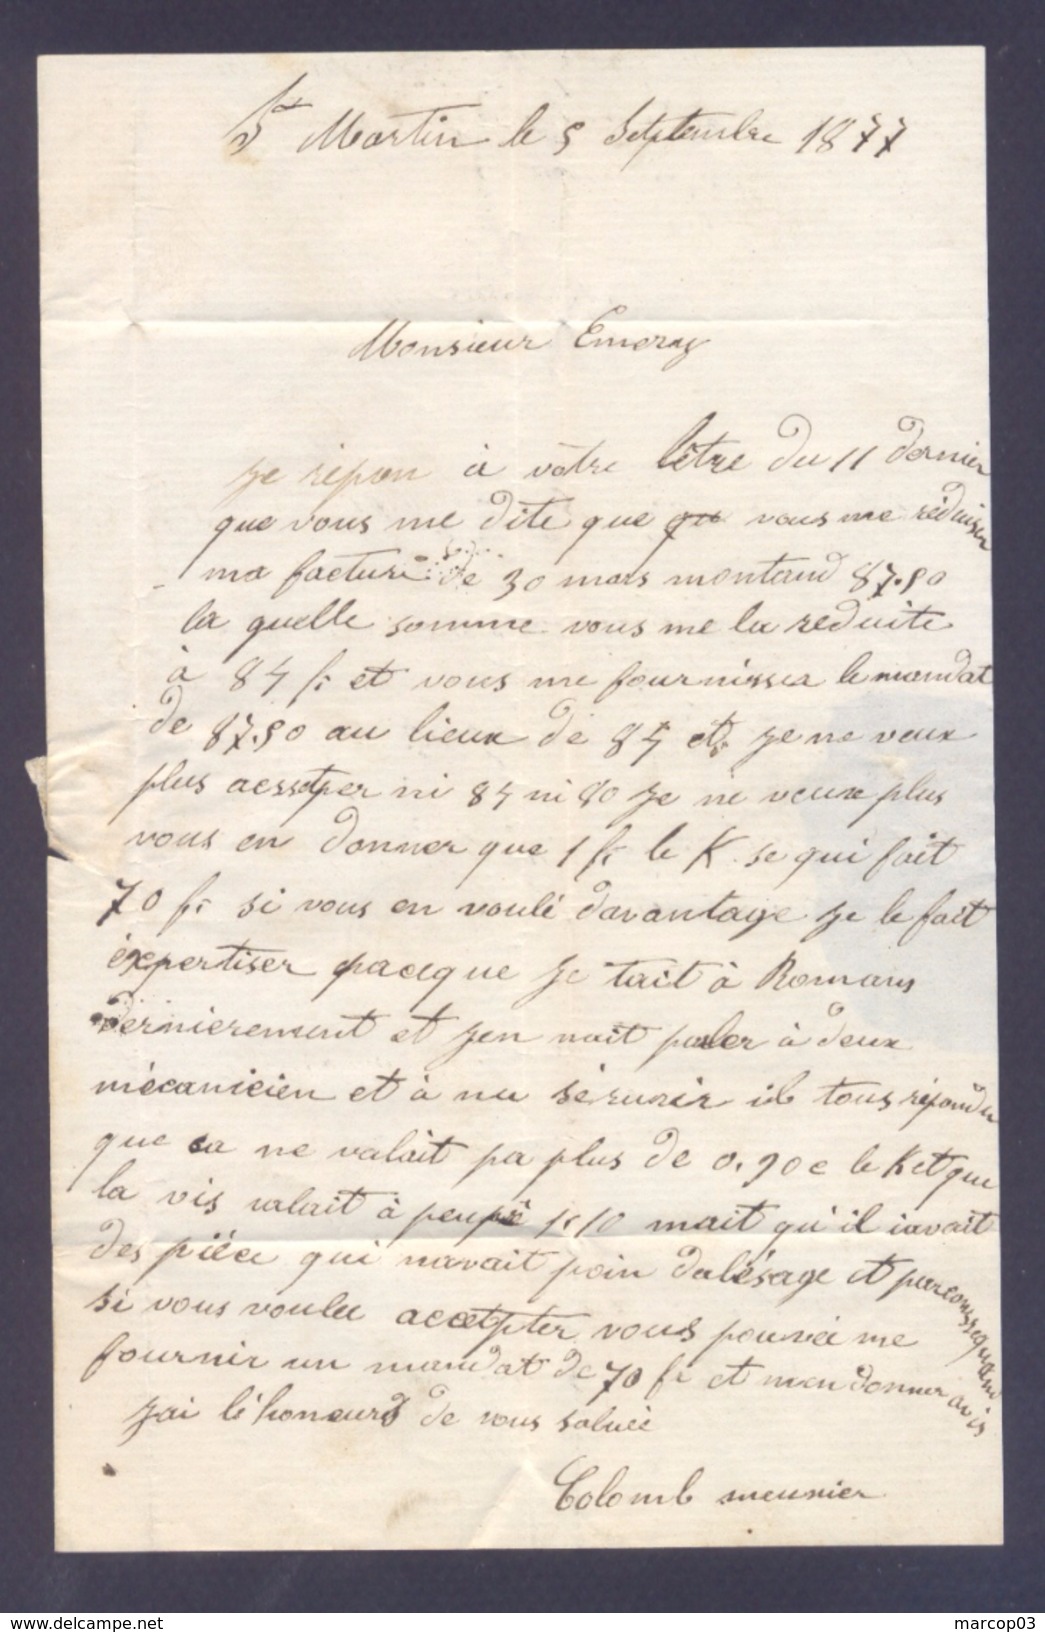 St Martin le 5 Septembre 1877
Monsieur Emery
Je répon à vôtre lêtre du 11 dernier
que vous me dite que vous me réduiser
ma facture de 30 mars montand 87.50
la quelle somme vous me la reduite
à 84 fr et vous me fournisser le mandat
de 87.50 au lieux de 84 et je ne veux
plus acsseter ni 84 ni 80 Je ne veux plus
vous en donner que 1 fr le K. se qui fait
70 fr si vous en voulé davantage je le fait
éxpertiser paceque Je tait à Romans
dernierement et jen nait paler à deux
mécanicien et à nu sérurier ils tous répondu
que sa ne valait pa plus de 0.90c le K et que
la vis valait à peuprè 1f10 mait qu'il iavait
des piéce qui navait poin dalésage et parconssequand
si vous voulu accetpter vous pouvéé me
fournir un mandat de 70 fr et men donner avis
Jai lé honeurs de vous saluée
Colomb meunier
marcop03
www.delcampe.net